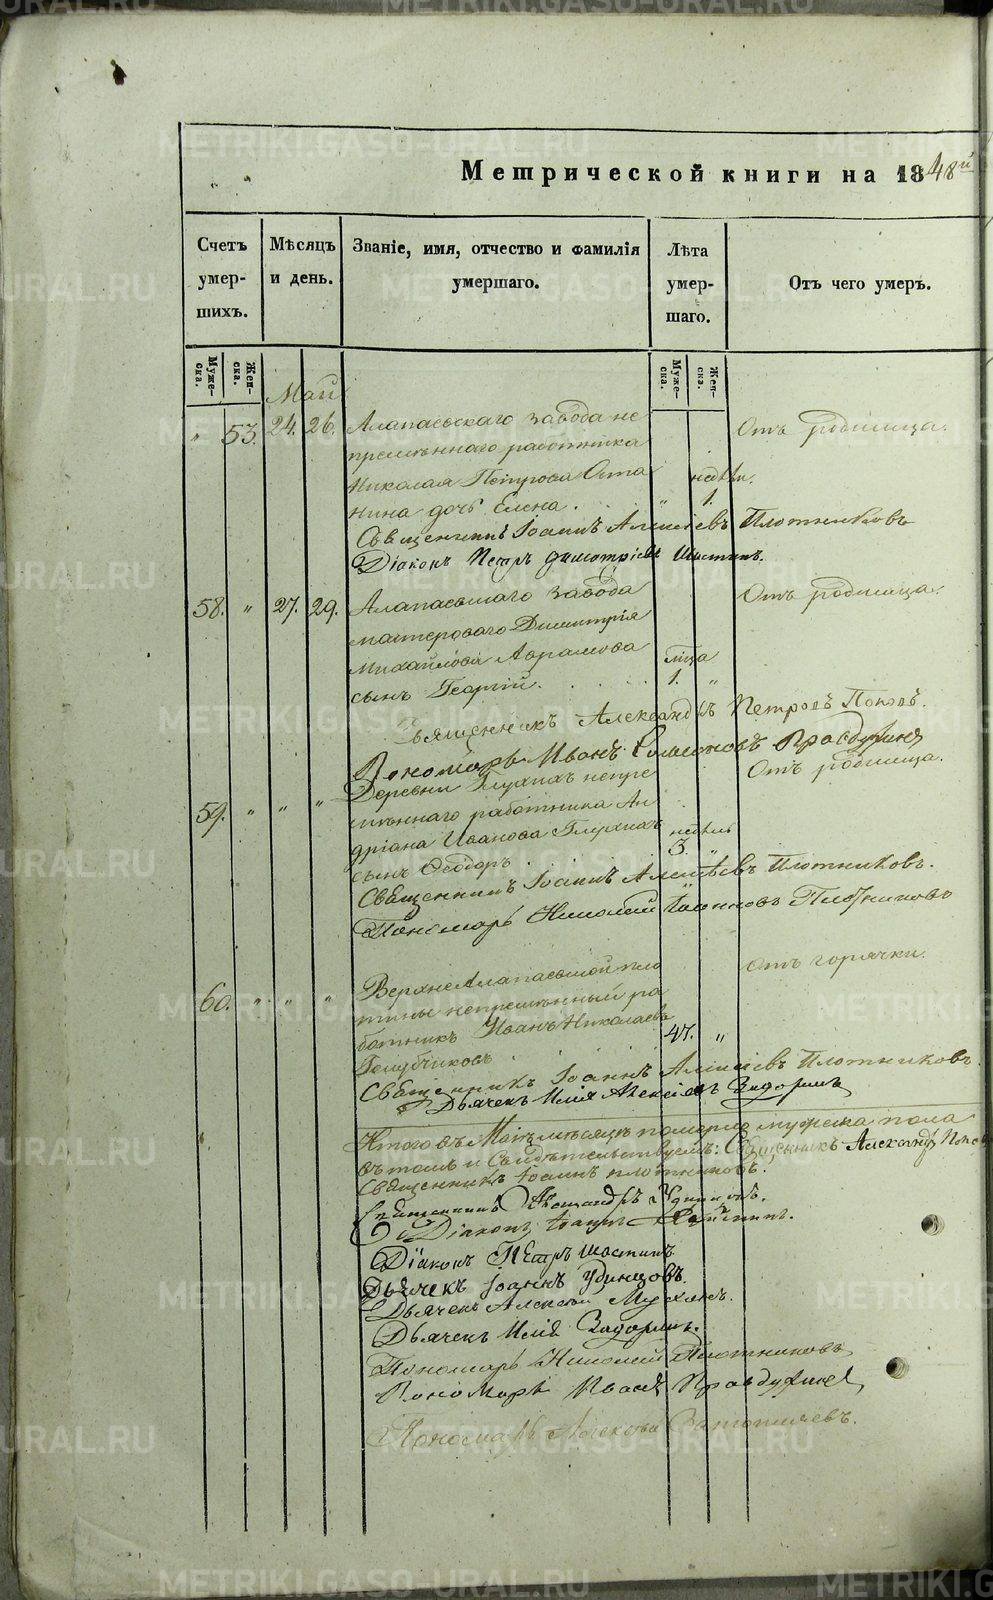 Метрической книги на 1848й
Счетъ умер-шихъ.
Мѣсяцъ и день.
Званіе, имя, отчество и фамилія умершаго.
Лѣта умер-шаго.
Отъ чего умеръ.
Муже-ска.
Жен-ска.
Муже-ска.
Жен-ска.
Май
" 53. 24. 26. Алапаевскаго завода не Отъ родимца.
премѣннаго работника
Николая Петрова Оста недѣли.
нина дочь Елена. " 1.
Священникъ Іоаннъ Алексіевъ Плотниковъ
Діаконъ Петръ Димитріевъ Шастинъ.
58. " 27. 29. Алапаевскаго завода Отъ родимца.
мастероваго Димитрія
Михайлова Абрамова мѣца
сынъ Георгій. 1. "
Священникъ Александръ Петровъ Поповъ.
Пономарь Иванъ Правдухинъ
59. " " " Деревни Глухихъ непре Отъ родимца.
мѣннаго работника Ан
дріана Иванова Глухихъ недѣль
сынъ Ѳеодоръ 3. "
Священникъ Іоаннъ Алексѣевъ Плотниковъ.
Пономарь Николай Плотниковъ
60. " " " ВерхнеАлапаевской пло отъ горячки.
тины непремѣнный ра
ботникъ Иванъ Николаевъ 47. "
Голубчиковъ
Священникъ Іоаннъ Алексіевъ Плотниковъ
Дьячекъ Илія Алексіевъ Задоринъ
Итого въ Маѣ мѣсяцѣ померло мужска пола
въ томъ и свидѣтельствуемъ: Священникъ Александръ Поповъ
Священникъ Іоаннъ Плотниковъ.
Священникъ Александръ Удинцовъ.
Діаконъ Іоаннъ
Діаконъ Петръ Шастинъ
Дьячекъ Іоаннъ Удинцовъ.
Дьячекъ Алексѣй
Дьячекъ Илія Задоринъ.
Пономарь Николай Плотниковъ
Пономарь Иванъ Правдухинъ
Пономарь
METRIKI.GASO-URAL.RU